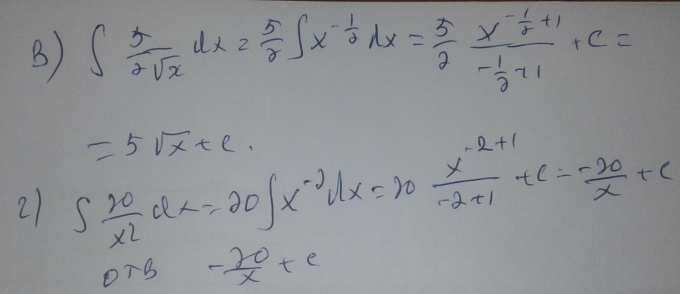 в) ∫ 5/(2√x) dx = 5/2 ∫ x^(-1/2) dx = 5/2 x^(-1/2+1)/(-1/2+1) + c =
= 5√x + c.
г) ∫ 20/x2 dx = 20 ∫ x^(-2) dx = 20 x^(-2+1)/(-2+1) + c = -20/x + c
отв -20/x + c